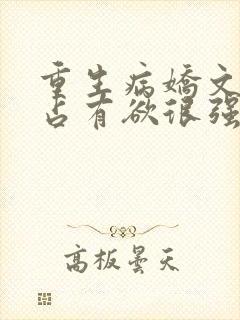 重生病嬌文
占有欲很强
高板曇天